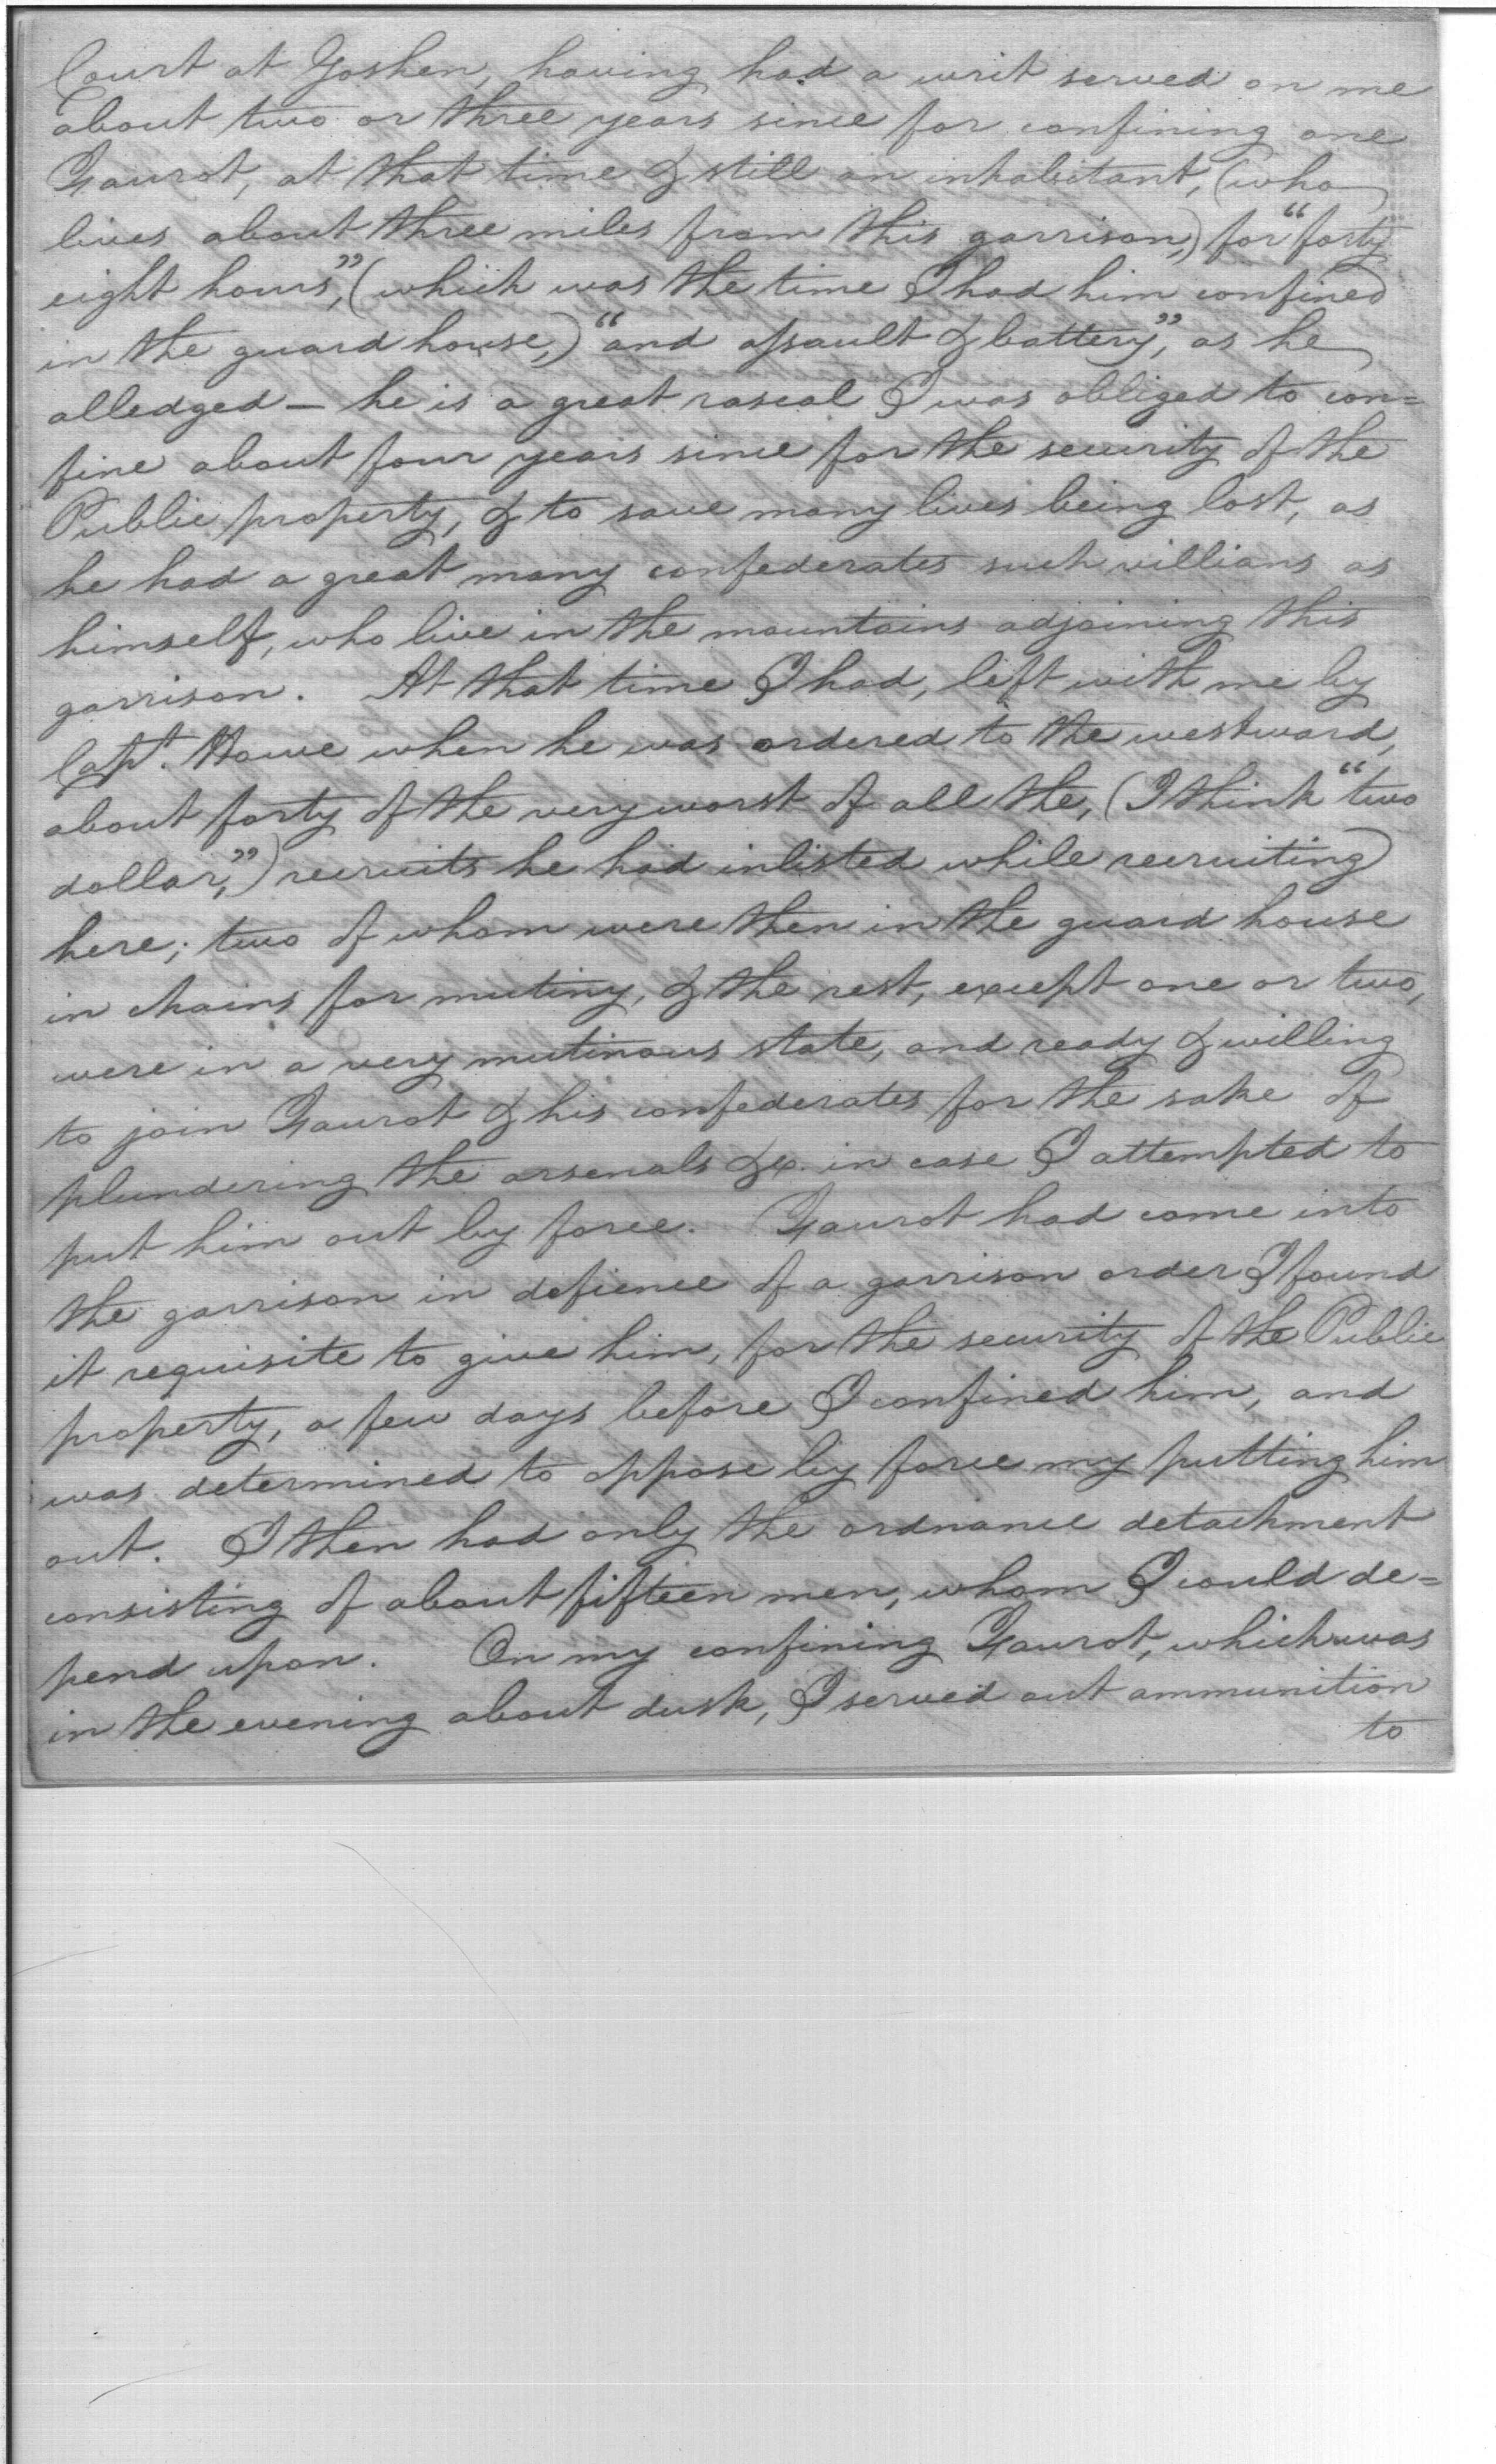 Court at Goshen, having had a writ served on me
about two or three years since for confining one
Gaurot, at that time & still an inhabitant, (who
lives about three miles from this garrison,) for "forty
eight hours", (which was the time I had him confined
in the guard house,) "and assault & battery", as he
alledged — he is a great rascal I was obliged to con=
fine about four years since for the security of the
Public property, & to save many lives being lost, as
he had a great many confederates such villians as
himself, who live in the mountains adjoining this
garrison. At that time I had, left with me by
Capt. Howe when he was ordered to the westward,
about forty of the very worst of all the, (I think "two
dollar",) recruits he had inlisted while recruiting
here; two of whom were then in the guard house
in chains for mutiny, & the rest, except one or two,
were in a very mutinous state, and ready & willing
to join Gaurot & his confederates for the sake of
plundering the arsenals &c. in case I attempted to
put him out by force. Gaurot had come into
the garrison in defience of a garrison order I found
it requisite to give him, for the security of the Public
property, a few days before I confined him, and
was determined to oppose by force my putting him
out. I then had only the ordnance detachment
consisting of about fifteen men, whom I could de=
pend upon. On my confining Gaurot, which was
in the evening about dusk, I served out ammunition
to